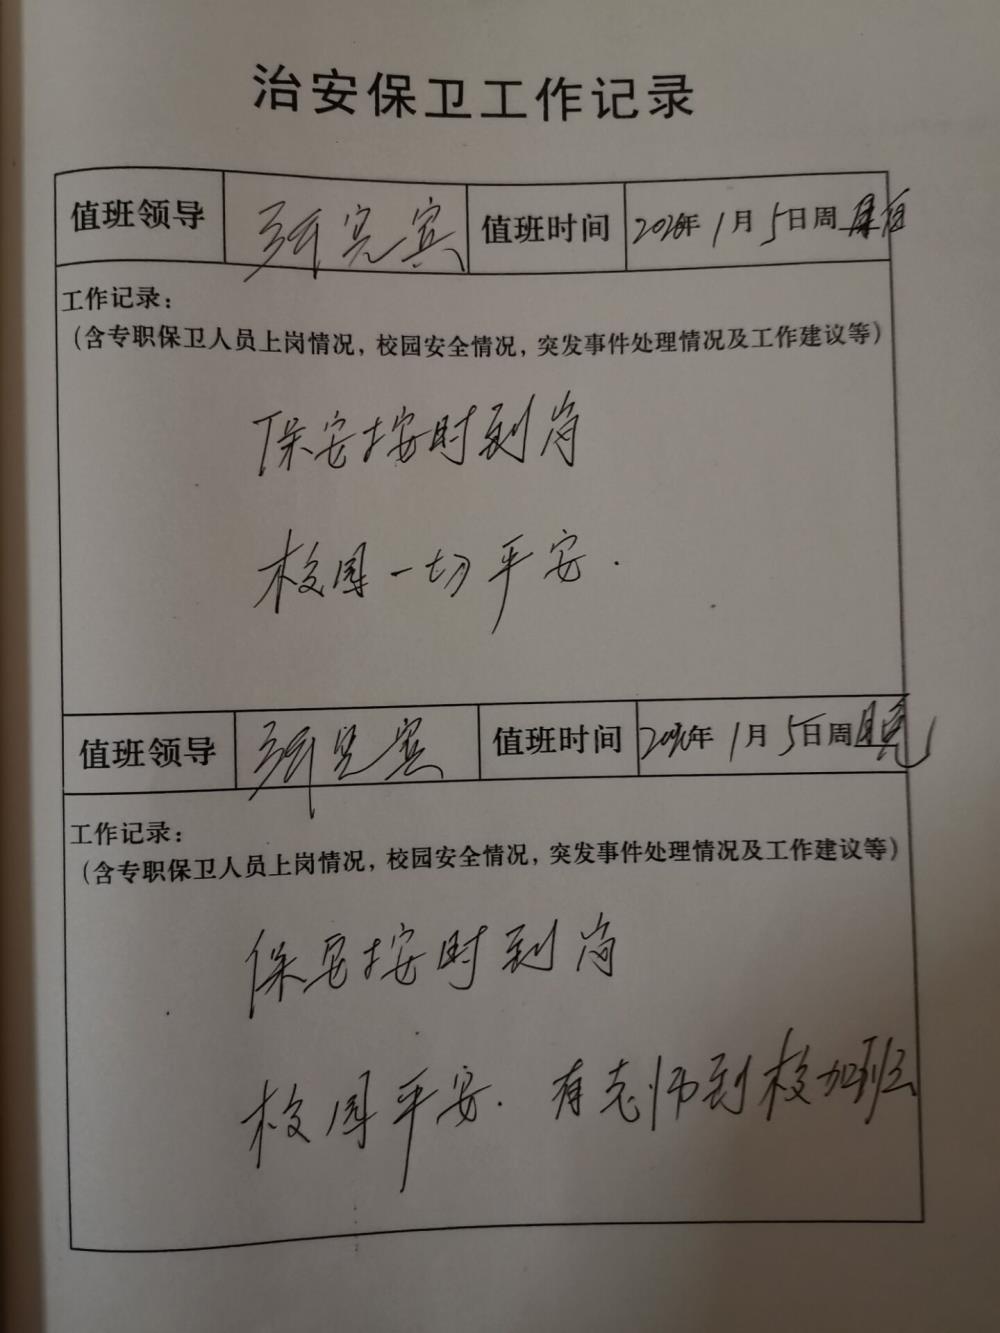 治安保卫工作记录
值班领导 值班时间 年1月5日周
工作记录：
（含专职保卫人员上岗情况，校园安全情况，突发事件处理情况及工作建议等）
保安按时到岗
校园一切平安.
值班领导 值班时间 年1月5日周
工作记录：
（含专职保卫人员上岗情况，校园安全情况，突发事件处理情况及工作建议等）
保安按时到岗
校园平安. 有老师到校加班